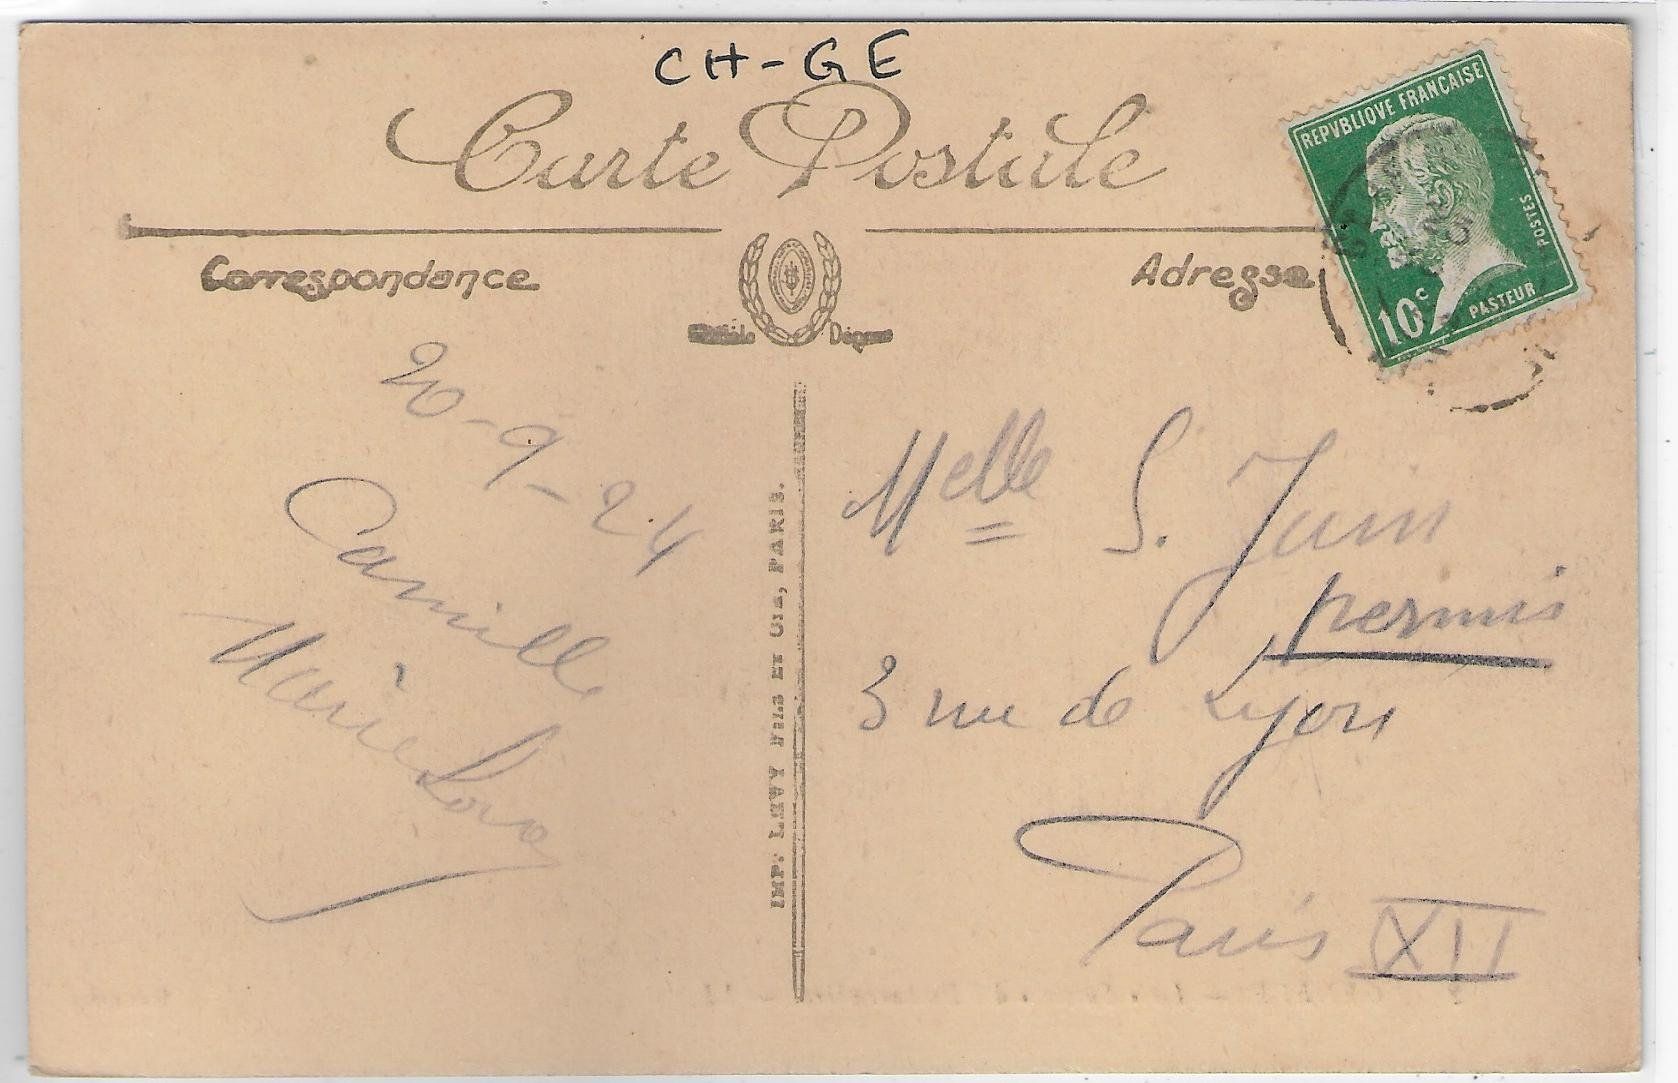 CH-GE
Carte Postale
Correspondance
Adresse
REPVBLIQVE FRANCAISE
POSTES
10c
PASTEUR
20-9-24
Camille
Marie
IMP. LEVY FILS ET CIE, PARIS.
Melle S. Juin
permis
3 rue de Lyon
Paris XII